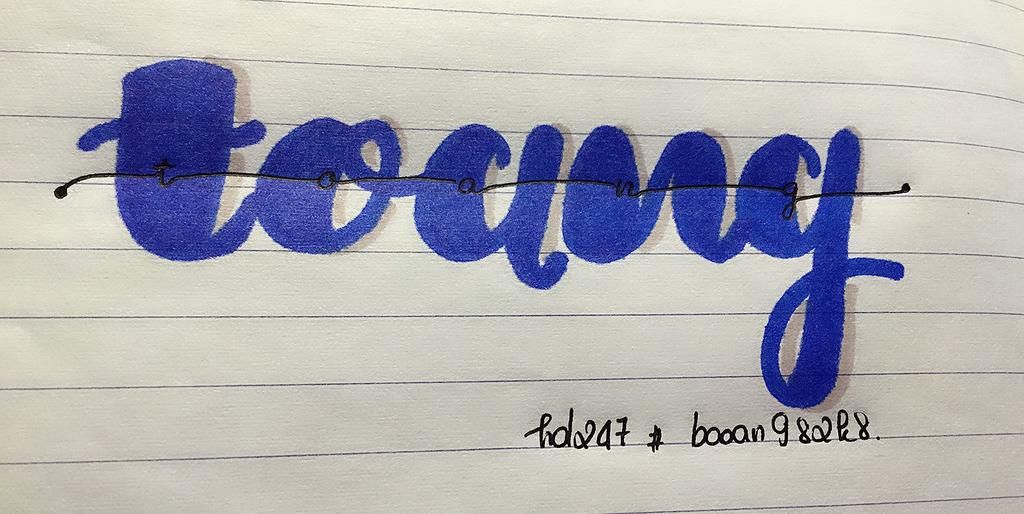 toang
t o a n g
hd247 # booan982k8.